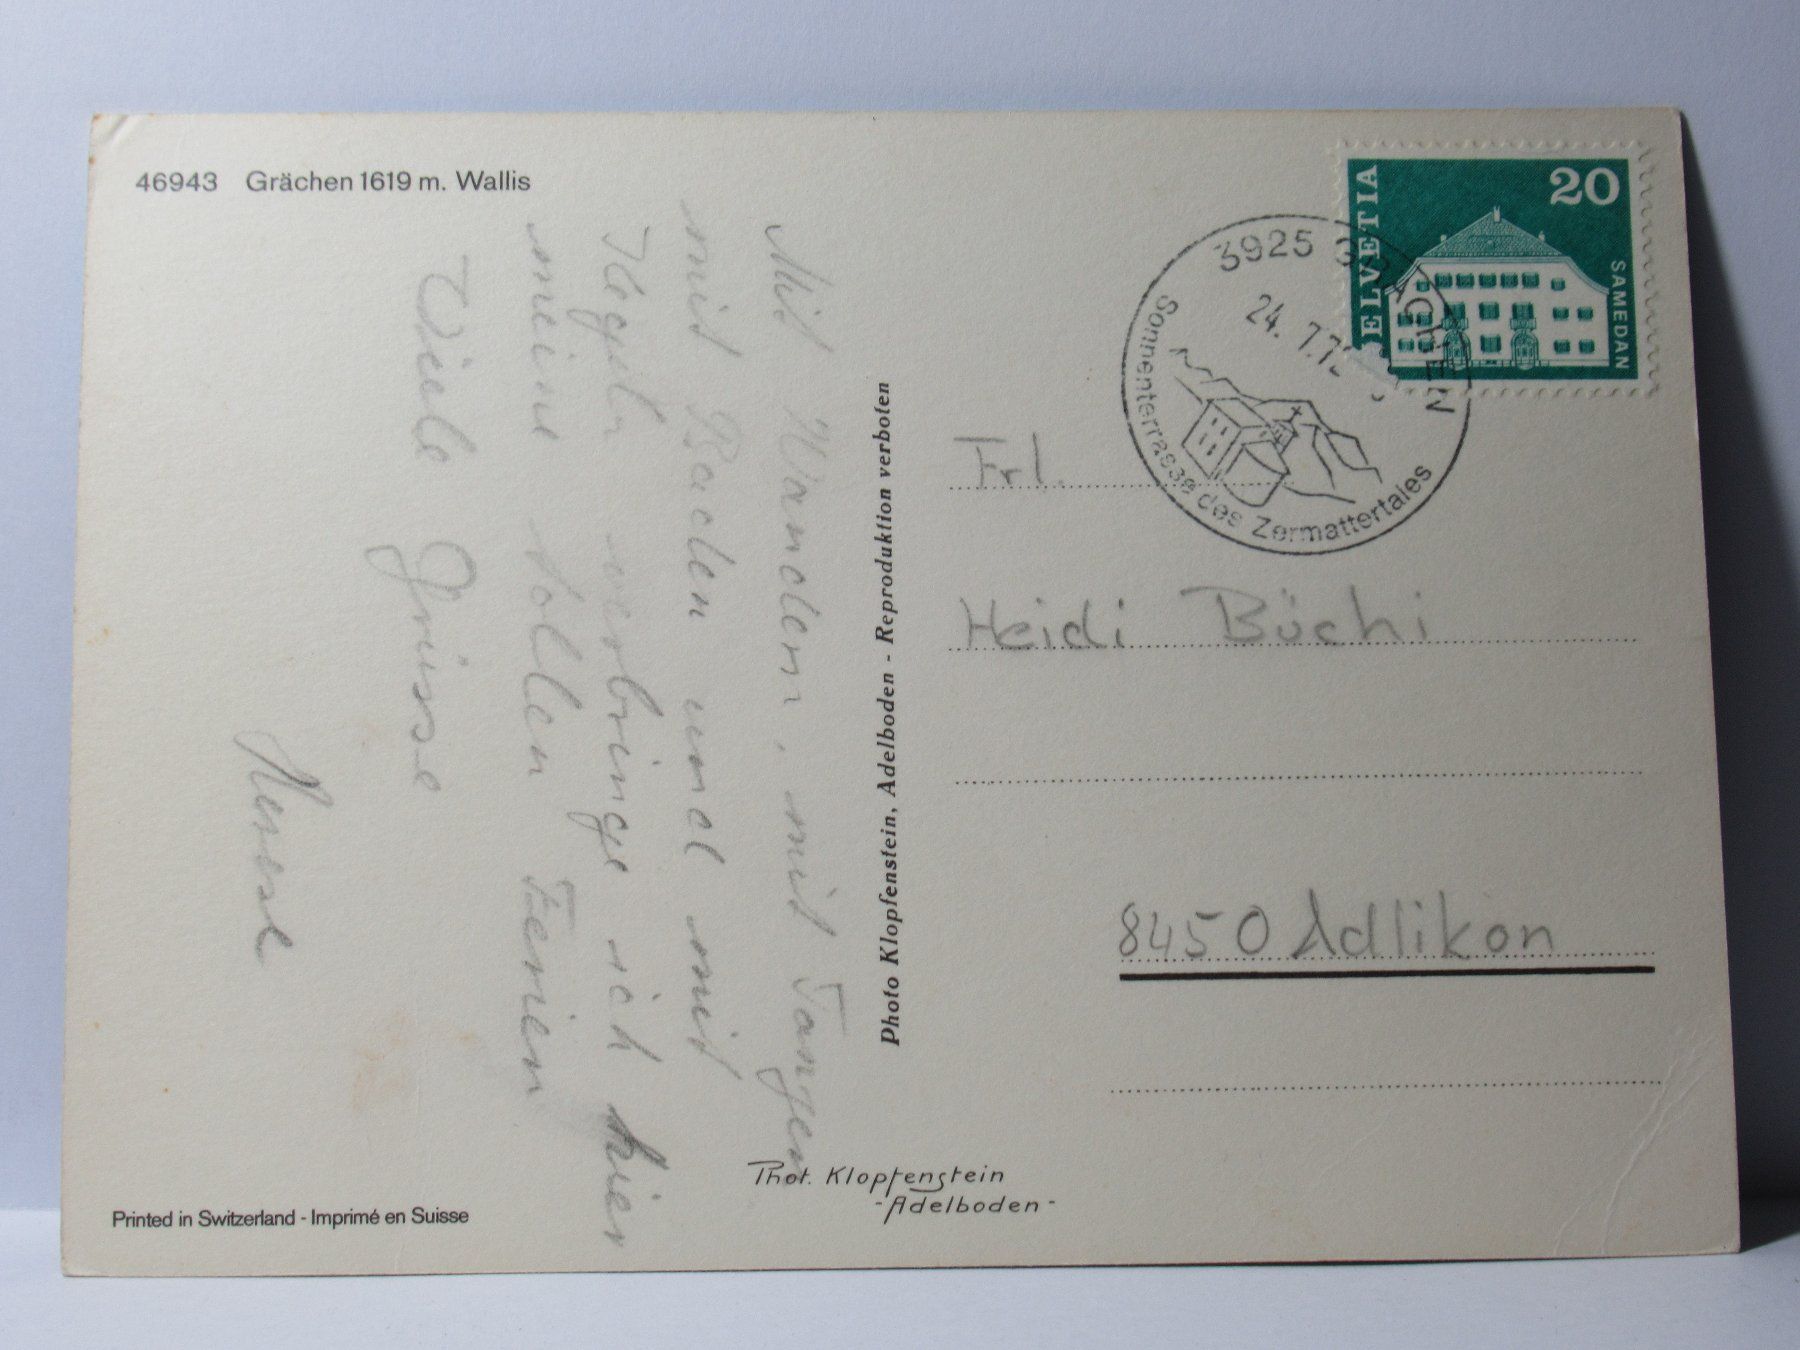 46943 Grächen 1619 m. Wallis
Mit Wandern, mit Tangen
mit Baden und mit
Kegeln verbringe ich hier
meine tollen Ferien
Viele Grüsse
Photo Klopfenstein, Adelboden - Reproduktion verboten
HELVETIA
20
SAMEDAN
3925 GRÄCHEN
24. 7.7
Sonnenterrasse des Zermattertales
Frl.
Heidi Büchi
8450 Adlikon
Phot. Klopfenstein
- Adelboden -
Printed in Switzerland - Imprimé en Suisse